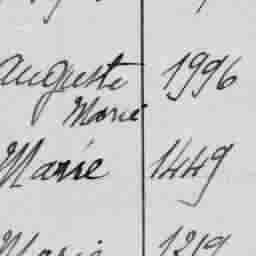 Auguste 1996
Marie
Marie 1449
Marie 1219